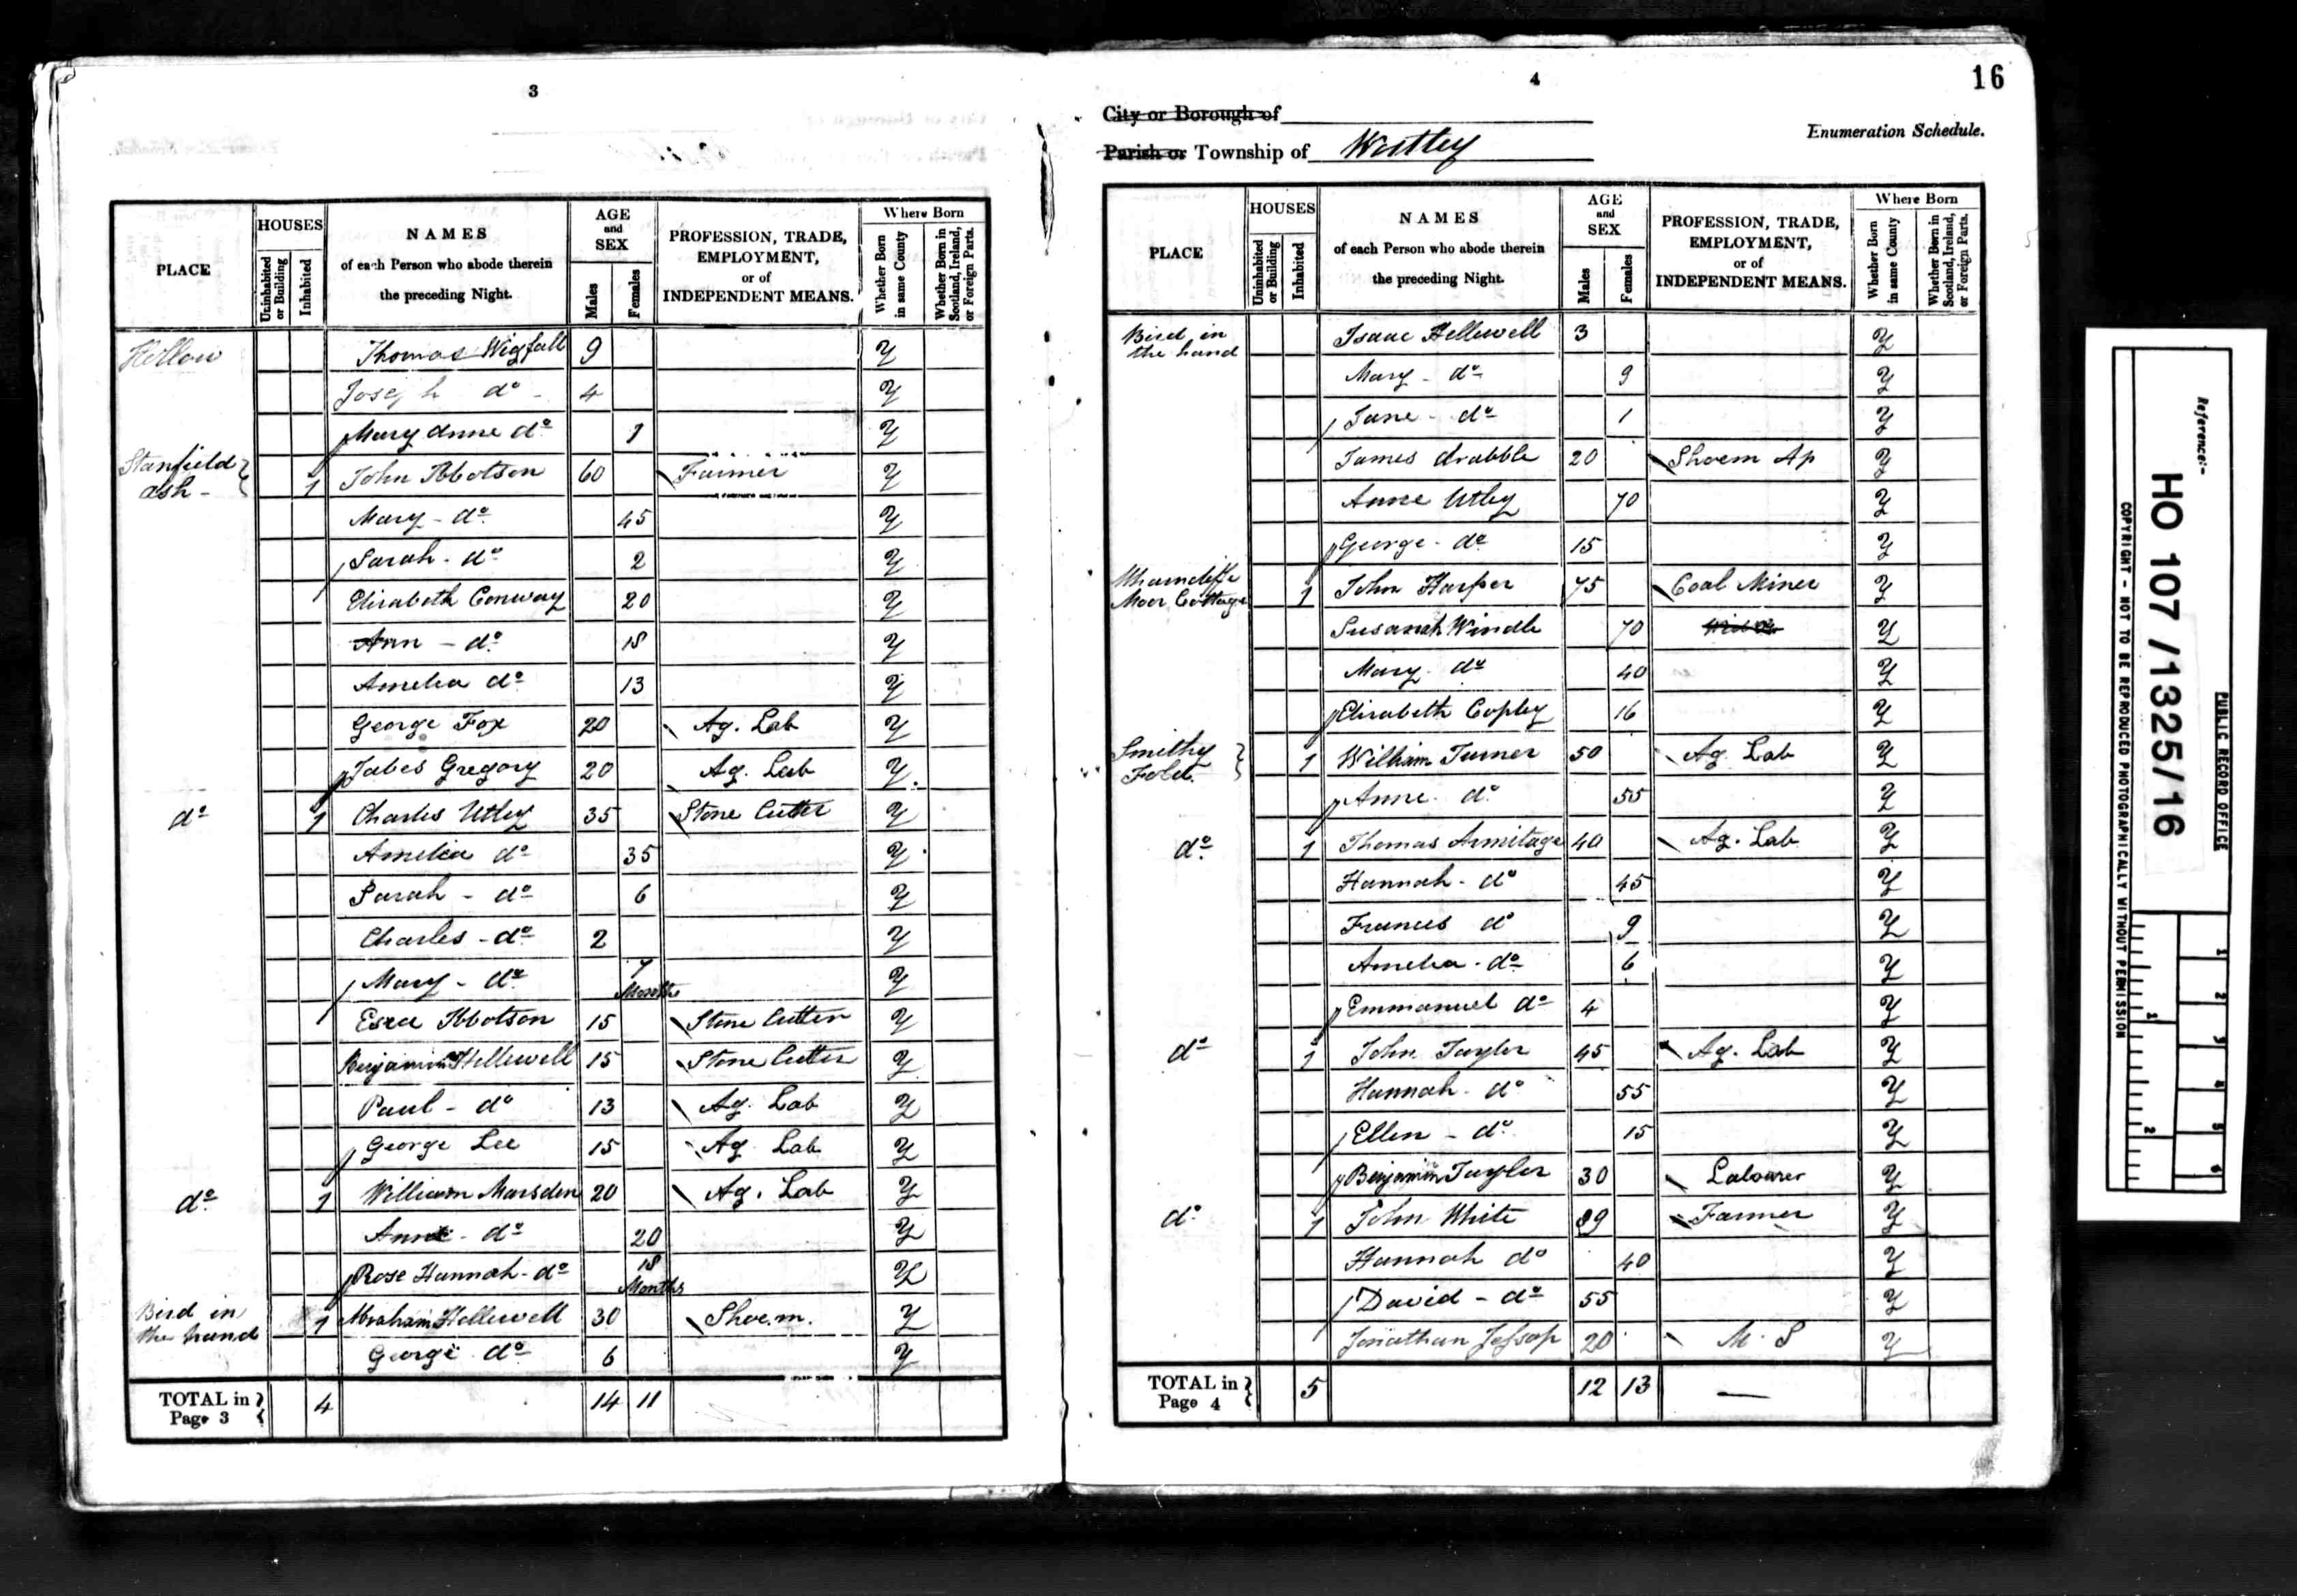 3
PLACE
HOUSES
Uninhabited or Building
Inhabited
NAMES
of each Person who abode therein
the preceding Night.
AGE
and
SEX
Males
Females
PROFESSION, TRADE,
EMPLOYMENT,
or of
INDEPENDENT MEANS.
Where Born
Whether Born in same County
Whether Born in Scotland, Ireland, or Foreign Parts.
Thomas Wigfall 9 Y
Joseph do 4 Y
Mary Anne do 1 Y
Stanfield
Ash - 1 John Ibbotson 60 Farmer Y
Mary - do 45 Y
Sarah - do 2 Y
Elizabeth Conway 20 Y
Ann - do 18 Y
Amelia do 13 Y
George Fox 20 Ag. Lab Y
Jabes Gregory 20 Ag. Lab Y
do 1 Charles Utley 35 Stone Cutter Y
Amelia do 35 Y
Sarah - do 6 Y
Charles - do 2 Y
Mary - do 7 Months Y
Esra Ibbotson 15 Stone Cutter Y
Benjamin Hellewell 15 Stone Cutter Y
Paul - do 13 Ag. Lab Y
George Lee 15 Ag. Lab Y
do 1 William Marsden 20 Ag. Lab Y
Anne - do 20 Y
Rose Hannah - do 18 Months Y
Bird in
the hand 1 Abraham Hellewell 30 Shoe.m. Y
George do 6 Y
TOTAL in
Page 3 4 14 11
4
16
City or Borough of
Parish or Township of Wortley
Enumeration Schedule.
PLACE
HOUSES
Uninhabited or Building
Inhabited
NAMES
of each Person who abode therein
the preceding Night.
AGE
and
SEX
Males
Females
PROFESSION, TRADE,
EMPLOYMENT,
or of
INDEPENDENT MEANS.
Where Born
Whether Born in same County
Whether Born in Scotland, Ireland, or Foreign Parts.
Bird in
the hand Isaac Hellewell 3 Y
Mary - do 9 Y
Jane - do 1 Y
James Drabble 20 Shoem Ap Y
Anne Utley 70 Y
George - do 15 Y
Wharncliffe
Moor Cottage 1 John Harper 75 Coal Miner Y
Susanah Windle 70 Y
Mary do 40 Y
Elizabeth Copley 16 Y
Smithy
Fold 1 William Turner 50 Ag. Lab Y
Anne do 55 Y
do 1 Thomas Armitage 40 Ag. Lab Y
Hannah - do 45 Y
Frances do 9 Y
Amelia - do 6 Y
Emmanuel do 4 Y
do 1 John Taylor 45 Ag. Lab Y
Hannah - do 55 Y
Ellen - do 15 Y
Benjamin Taylor 30 Labourer Y
do 1 John White 89 Farmer Y
Hannah do 40 Y
David - do 55 Y
Jonathan Jessop 20 M. S Y
TOTAL in
Page 4 5 12 13 —
Reference:-
HO 107/1325/16
PUBLIC RECORD OFFICE
COPYRIGHT - NOT TO BE REPRODUCED PHOTOGRAPHICALLY WITHOUT PERMISSION
1
2
3
4
5
6
1
2